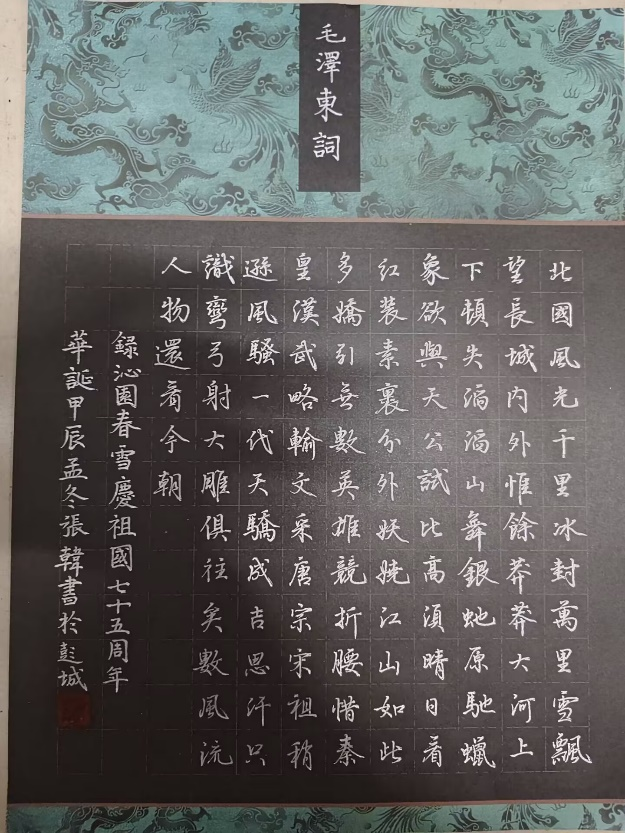 毛澤東詞
北國風光千里冰封萬里雪飄
望長城內外惟餘莽莽大河上
下頓失滔滔山舞銀蛇原馳蠟
象欲與天公試比高須晴日看
紅裝素裹分外妖嬈江山如此
多嬌引無數英雄競折腰惜秦
皇漢武略輸文采唐宗宋祖稍
遜風騷一代天驕成吉思汗只
識彎弓射大雕俱往矣數風流
人物還看今朝
錄沁園春雪慶祖國七十五周年
華誕甲辰孟冬張韓書於彭城